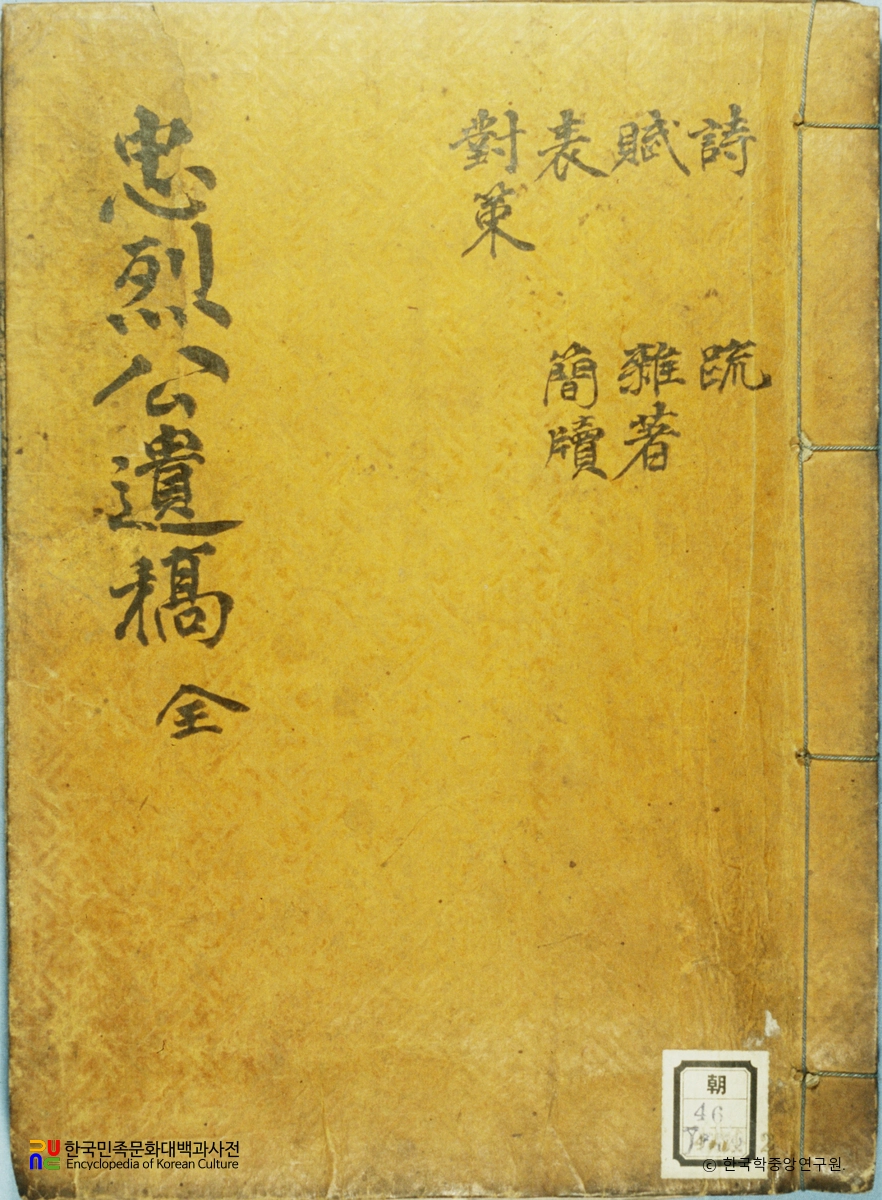 詩
賦
表
對策
疏
雜著
簡牘
忠烈公遺稿 全
朝
46
한국민족문화대백과사전
Encyclopedia of Korean Culture
© 한국학중앙연구원.